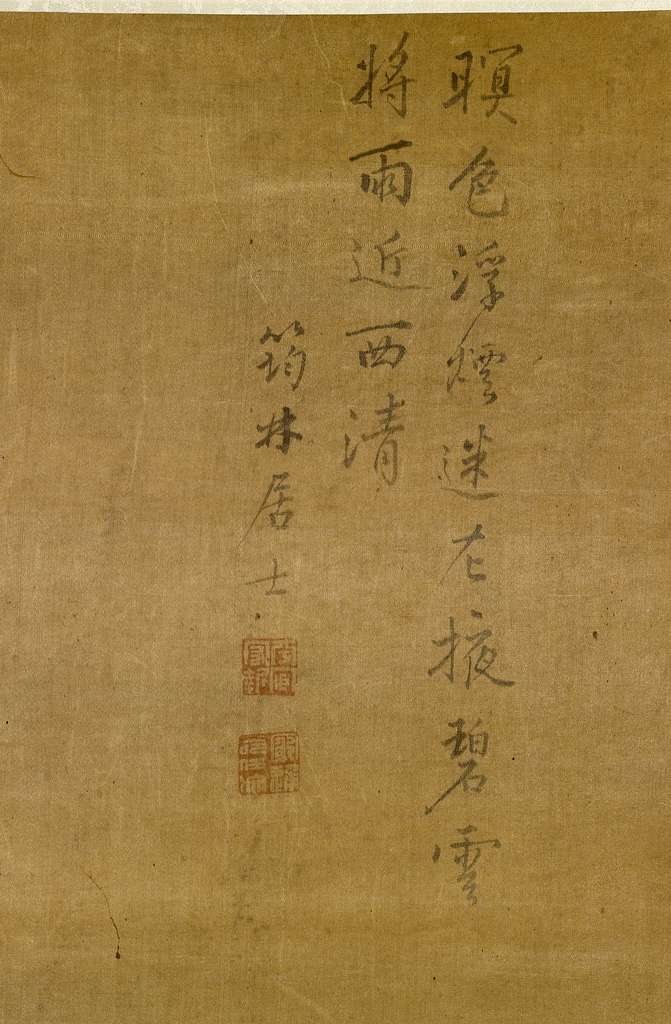 暝色浮煙迷左掖碧雲
將雨近西清
筠林居士